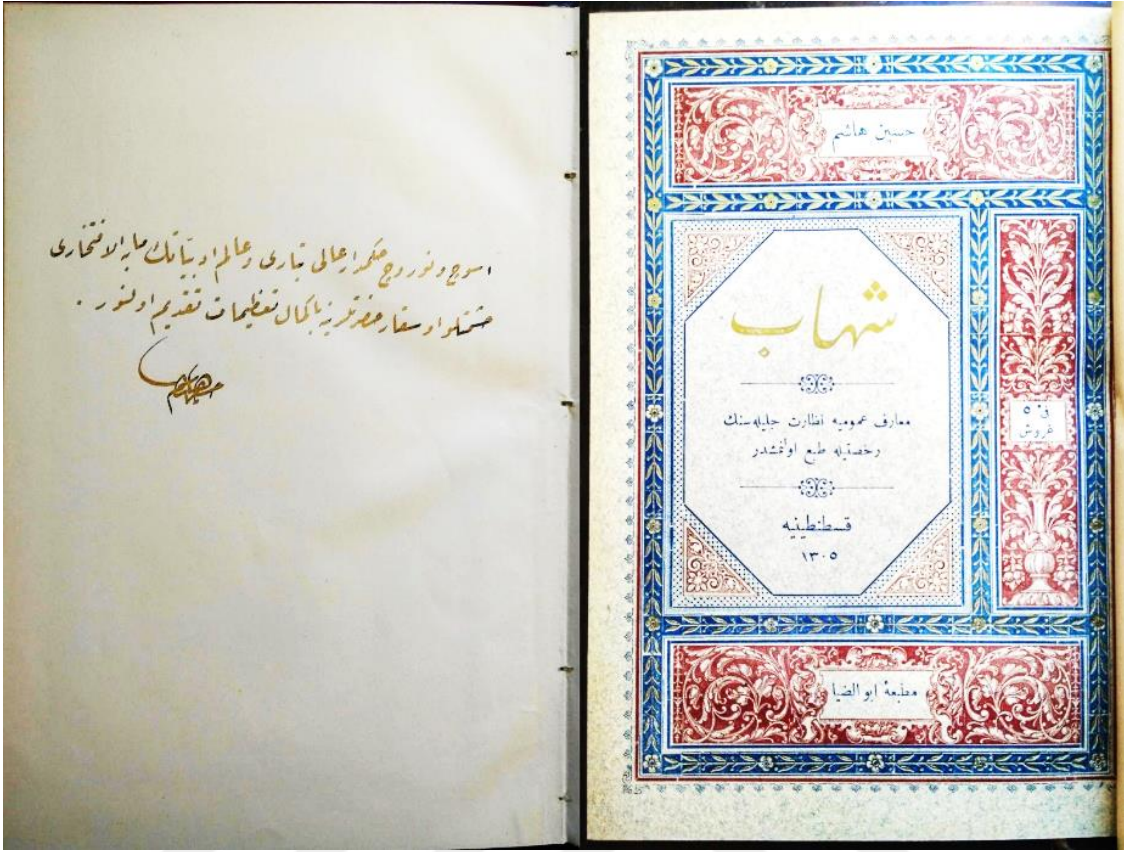 اسوج و نوروج حكمدار عالی تباری و عالم ادبیاتك مابه الافتخاری
حشمتلو اوسقار حضرتلرینه باكمال تعظیمات تقدیم اولنور .
حسین هاشم
شهاب
معارف عمومیه نظارت جلیله‌سنك
رخصتیله طبع اولنمشدر
قسطنطینیه
١٣٠٥
فی ٥
غروش
مطبعهٔ ابو الضیا